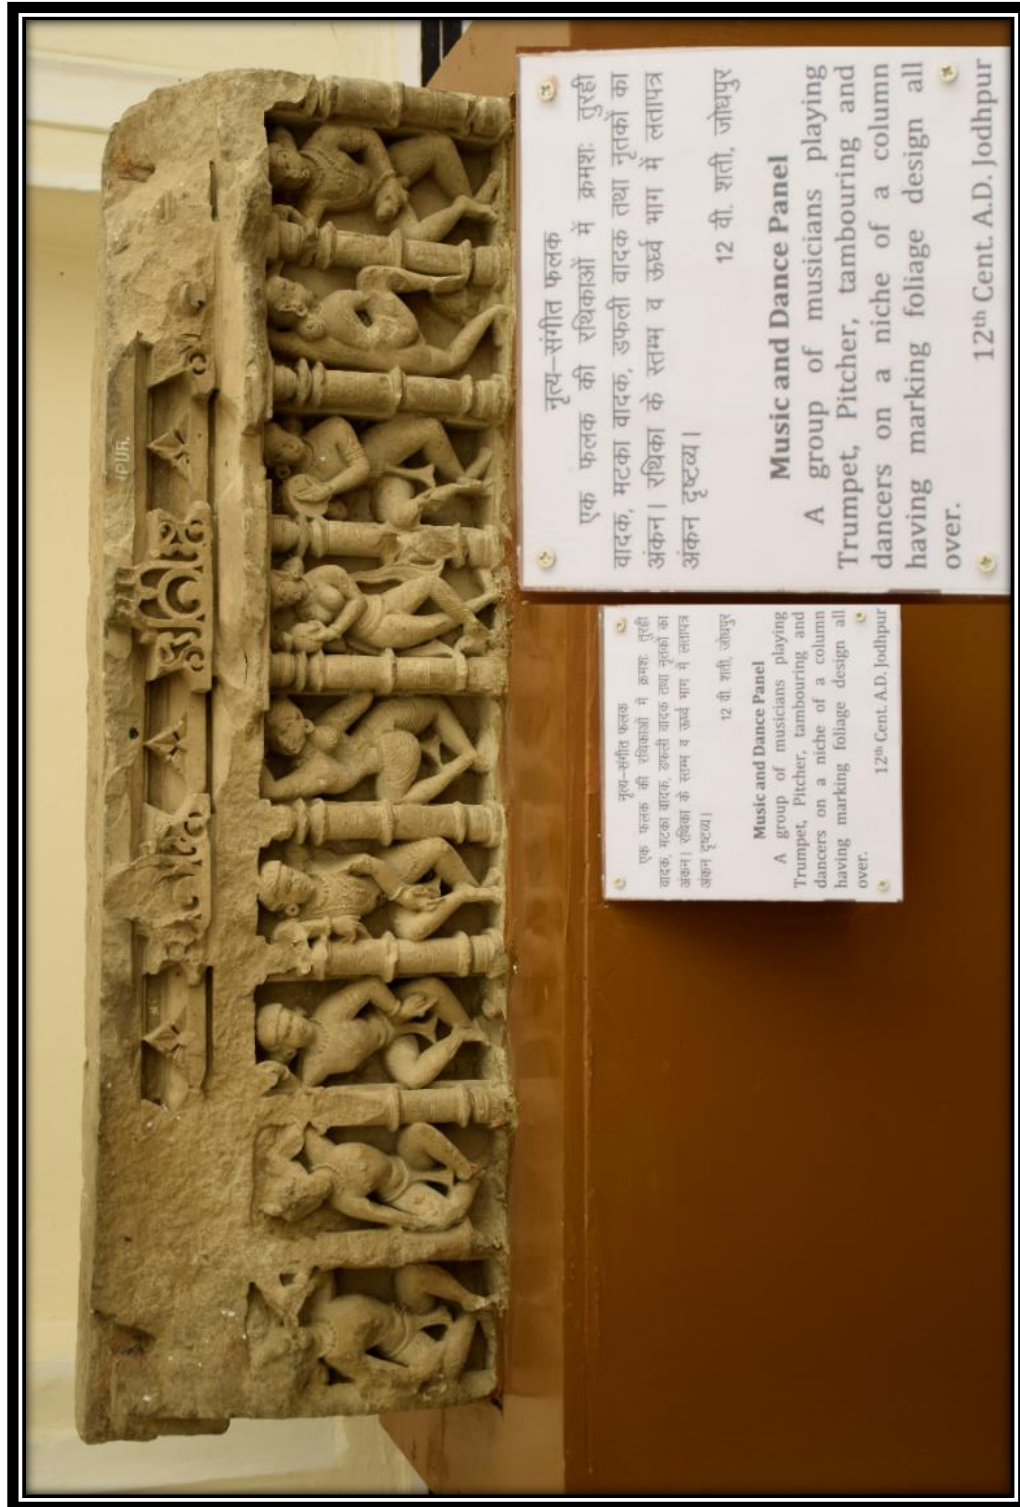 PUR.
नृत्य–संगीत फलक
एक फलक की रथिकाओं में क्रमशः तुरही
वादक, मटका वादक, डफली वादक तथा नृतकों का
अंकन। रथिका के स्तम्भ व ऊर्ध्व भाग में लतापत्र
अंकन दृष्टव्य।
12 वी. शती, जोधपुर
Music and Dance Panel
A group of musicians playing
Trumpet, Pitcher, tambouring and
dancers on a niche of a column
having marking foliage design all
over.
12th Cent. A.D. Jodhpur
नृत्य–संगीत फलक
एक फलक की रथिकाओं में क्रमशः तुरही
वादक, मटका वादक, डफली वादक तथा नृतकों का
अंकन। रथिका के स्तम्भ व ऊर्ध्व भाग में लतापत्र
अंकन दृष्टव्य।
12 वी. शती, जोधपुर
Music and Dance Panel
A group of musicians playing
Trumpet, Pitcher, tambouring and
dancers on a niche of a column
having marking foliage design all
over.
12th Cent. A.D. Jodhpur